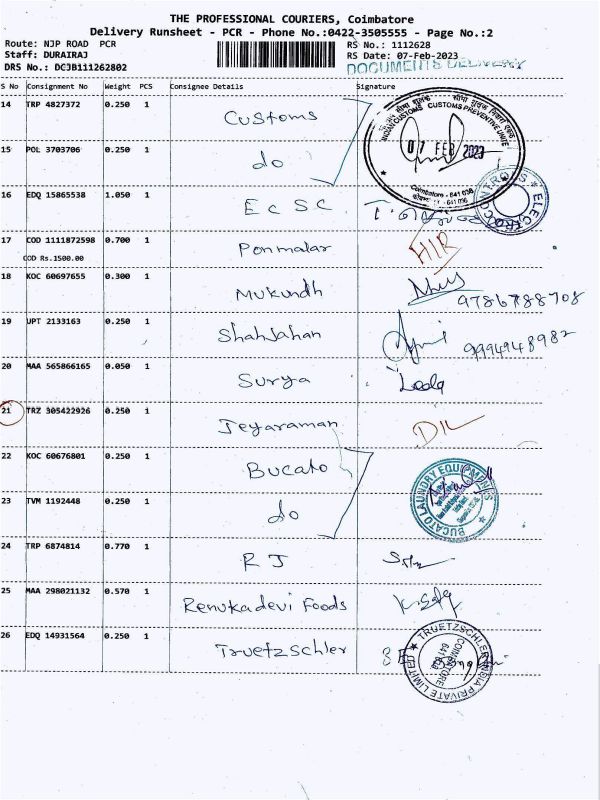 THE PROFESSIONAL COURIERS, Coimbatore
Delivery Runsheet - PCR - Phone No.:0422-3505555 - Page No.:2
Route: NJP ROAD PCR
Staff: DURAIRAJ
DRS No.: DCJB111262802
RS No.: 1112628
RS Date: 07-Feb-2023
DOCUMENTS DELIVERY
S No Consignment No Weight PCS Consignee Details Signature
14 TRP 4827372 0.250 1 Customs
INDIAN CUSTOMS CUSTOMS PREVENTIVE UNIT
07 FEB 2023
Coimbatore - 641 036
15 POL 3703706 0.250 1 do
16 EDQ 15865538 1.050 1 ECSC
ELECTROCONTROLS
17 COD 1111872598 0.700 1 Ponmalar HIR
COD Rs.1500.00
18 KOC 60697655 0.300 1 Mukundh 9786788708
19 UPT 2133163 0.250 1 Shahjahan 9994948982
20 MAA 565866165 0.050 1 Surya
21 TRZ 305422926 0.250 1 Jeyaraman DIL
22 KOC 60676801 0.250 1 Bucato
BUCATO LAUNDRY EQUIPMENTS
23 TVM 1192448 0.250 1 do
24 TRP 6874814 0.770 1 RJ
25 MAA 298021132 0.570 1 Renukadevi Foods
26 EDQ 14931564 0.250 1 Truetzschler
TRUETZSCHLER INDIA PRIVATE LIMITED
COIMBATORE